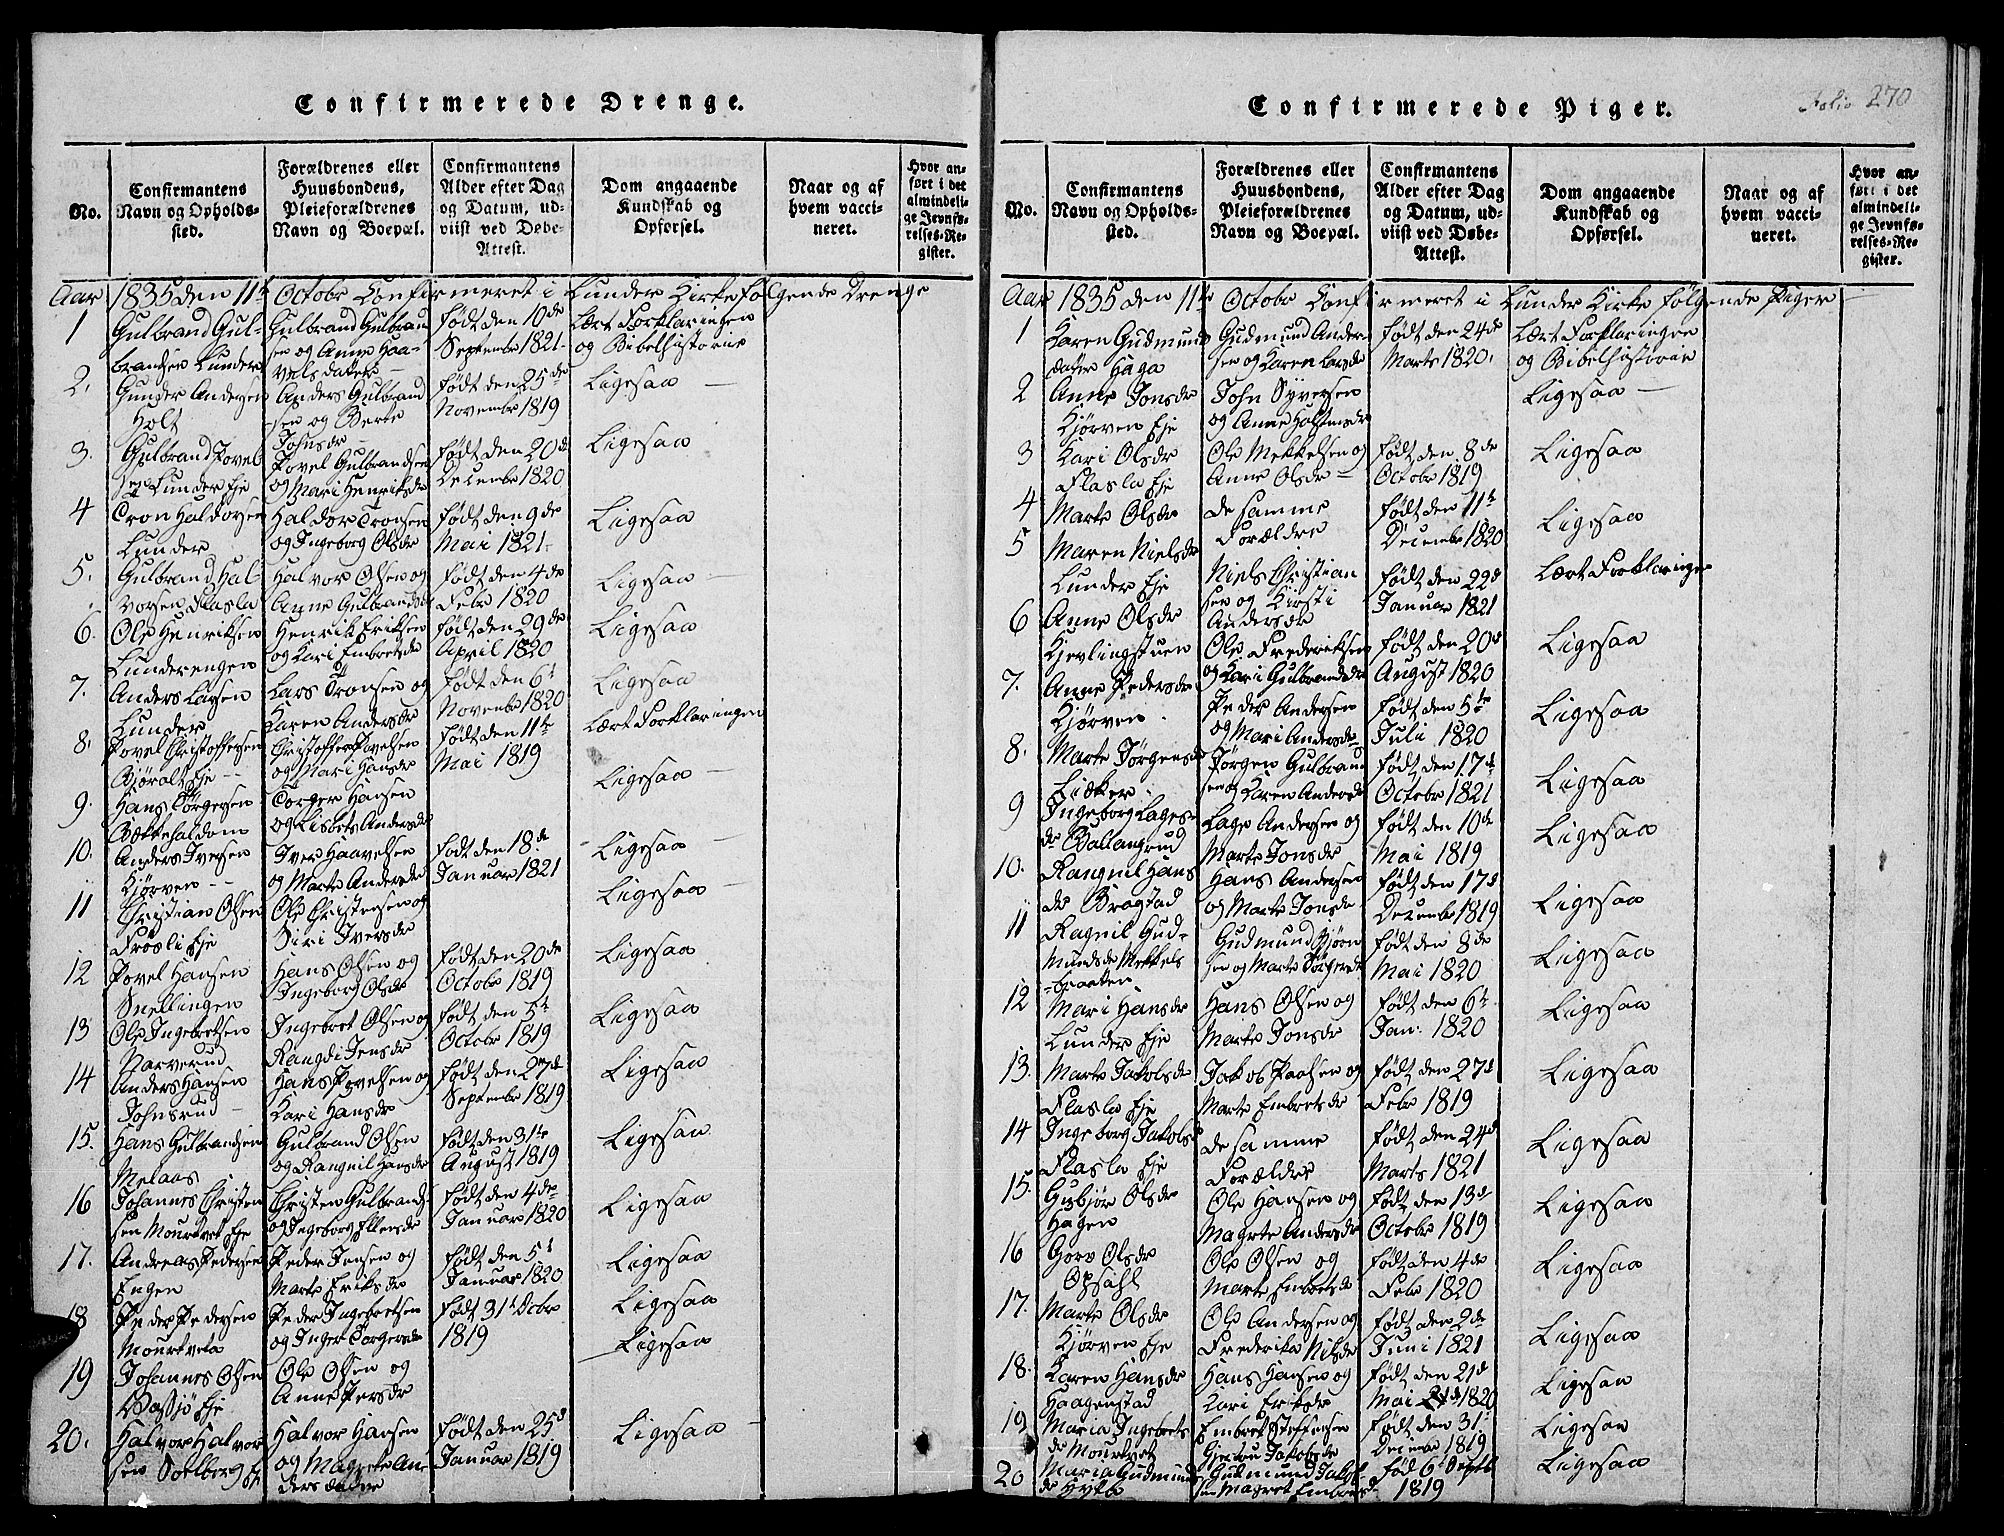 Confirmerede Drenge.
No.
Confirmantens Navn og Opholdssted.
Forældrenes eller Huusbondens, Pleieforældrenes Navn og Boepæl.
Confirmantens Alder efter Dag og Datum, udviist ved Døbe-Attest.
Dom angaaende Kundskab og Opførsel.
Naar og af hvem vaccineret.
Hvor anført i det almindelige Jevnførelses-Register.
Aar 1835 den 11te Octobr Confirmeret i Lunder Kirke følgende Drenge
1 Gulbrand Gulbrandsen Lunder Gulbrand Gulbrandsen og Anne Haavelsdatter født den 10de Septembr 1821 Lært Forklaringen og Bibelhistorie
2. Gunder Andersen Holt Anders Gulbrandsen og Berte Johnsdr født den 25de Novembr 1819 Ligesaa
3. Gulbrand Povelsen Lunder Eje Povel Gulbrandsen og Mari Henriksdr født den 20de Decembr 1820 Ligesaa
4 Tron Haldorsen Lunder Haldor Tronsen og Ingeborg Olsdr født den 9de Mai 1821 Ligesaa
5. Gulbrand Halvorsen Flasla Halvor Olsen og Anne Gulbrandsdr født den 4de Febr 1820 Ligesaa
6. Ole Henriksen Lunderengen Henrik Eriksen og Kari Embretsdr født den 29de April 1820 Ligesaa
7. Anders Larsen Lunder Lars Tronsen og Karen Andersdr født den 6te Novembr 1820 Ligesaa
8. Povel Christoffersen Eje Christoffer Povelsen og Mari Hansdr født den 11te Mai 1819 Lært Forklaringen
9. Hans Tørgersen Torger Hansen og Lisbet Andersdr Ligesaa
10. Anders Iversen Kjørven Iver Haavelsen og Marte Andersdr født den 18de Januar 1821 Ligesaa
11 Christian Olsen Frøsli Eje Ole Christensen og Siri Iversdr Ligesaa
12 Povel Hansen Snellingen Hans Olsen og Ingeborg Olsdr født den 20de Octobr 1819 Ligesaa
13 Ole Ingebretsen Narverud Ingebret Olsen og Rangdi Jensdr født den 5te Octobr 1819 Ligesaa
14 Anders Hansen Johnsrud Hans Povelsen og Kari Hansdr født den 27de Septembr 1819 Ligesaa
15. Hans Gulbrandsen Melaas Gulbrand Olsen og Rangnil Hansdr født den 31te August 1819 Ligesaa
16 Johannes Christensen Eje Christen Gulbrands og Ingeborg Ellensdr født den 4de Januar 1820 Ligesaa
17. Andreas Pedersen Engen Peder Jensen og Marte Eriksdr født den 5te Januar 1820 Ligesaa
18 Peder Pedersen Peder Ingebretsen og Inger Torgersdr født 31te Octbr 1819 Ligesaa
19 Johannes Olsen Eje Ole Olsen og Anne Persdr Ligesaa
20. Halvor Halvorsen Soelberg Halvor Hansen og Magrete Andersdatter født den 25d Januar 1819 Ligesaa
Folio 270
Confirmerede Piger.
No.
Confirmantens Navn og Opholdssted.
Forældrenes eller Huusbondens, Pleieforældrenes Navn og Boepæl.
Confirmantens Alder efter Dag og Datum, udviist ved Døbe-Attest.
Dom angaaende Kundskab og Opførsel.
Naar og af hvem vaccineret.
Hvor anført i det almindelige Jevnførelses-Register.
Aar 1835 den 11te Octobr Confirmeret i Lunder Kirke følgende Piger
1 Karen Gudmundsdatter Haga Gudmund Andersen og Karen Larsdr født den 24de Marts 1820 Lært Forklaringen og Bibelhistorie
2 Anne Jonsdr Kjørven Eje John Syversen og Anne Ligesaa
3 Kari Olsdr Flasla Eje Ole Mekkelsen og Anne Olsdr født den 8de Octobr 1819 Ligesaa
4 Marte Olsdr de samme Forældre født den 11te Decembr 1820 Ligesaa
5 Maren Nielsdr Lunder Eje Niels Christiansen og Kirsti Andersdr født den 22d Januar 1821 Lært Forklaringen
6 Anne Olsdr Kjevlingstuen Ole Frederiksen og Kari Gulbrandsdr født den 20d August 1820 Ligesaa
7. Anne Pedersdr Kjørven Peder Andersen og Mari Andersdr født den 5te Juli 1820 Ligesaa
8. Marte Jørgensdr Jørgen Gulbrandsen og Karen Andersdr født den 17d Octobr 1821 Ligesaa
9 Ingeborg Lagesdr Ballangrud Lage Andersen og Marte Jonsdr født den 10de Mai 1819 Ligesaa
10. Rangnil Hansdr Bragstad Hans Andersen og Marte Jonsdr født den 17d Decembr 1819 Ligesaa
11 Ragnil Gudmundsdr Mekkelsbraaten Gudmund Bjørnsen og Marte født den 8de Mai 1820 Ligesaa
12 Mari Hansdr Lunder Eje Hans Olsen og Marte Jonsdr født den 6te Jan. 1820 Ligesaa
13. Marte Jakobsdr Flasla Eje Jakob Paalsen og Marte Embretsdr født den 27d Febr 1819 Ligesaa
14 Ingeborg Jakobsdr Flasla Eje de samme Forældre født den 24d Marts 1821 Ligesaa
15. Gubjør Olsdr Hagen Ole Hansen og Magrete Andersdr født den 13d Octobr 1819 Ligesaa
16 Gorv Olsdr Opsahl Ole Olsen og Marte Embretsdr født den 4de Febr 1820 Ligesaa
17. Marte Olsdr Kjørven Eje Ole Andersen og Frederika Nilsdr født den 2de Juni 1821 Ligesaa
18. Karen Hansdr Haagenstad Hans Hansen og Kari Eriksdr født den 21d Mai 1820 Ligesaa
19 Maria Ingebretsdr Embret Steffensen Gjertru Jakobsdr født den 31te Decembr 1819 Ligesaa
20 Maria Gudmundsdr Hytte Gudmund Jakobsen Magret Embretsdr fød 6te Septb 1819 Ligesaa